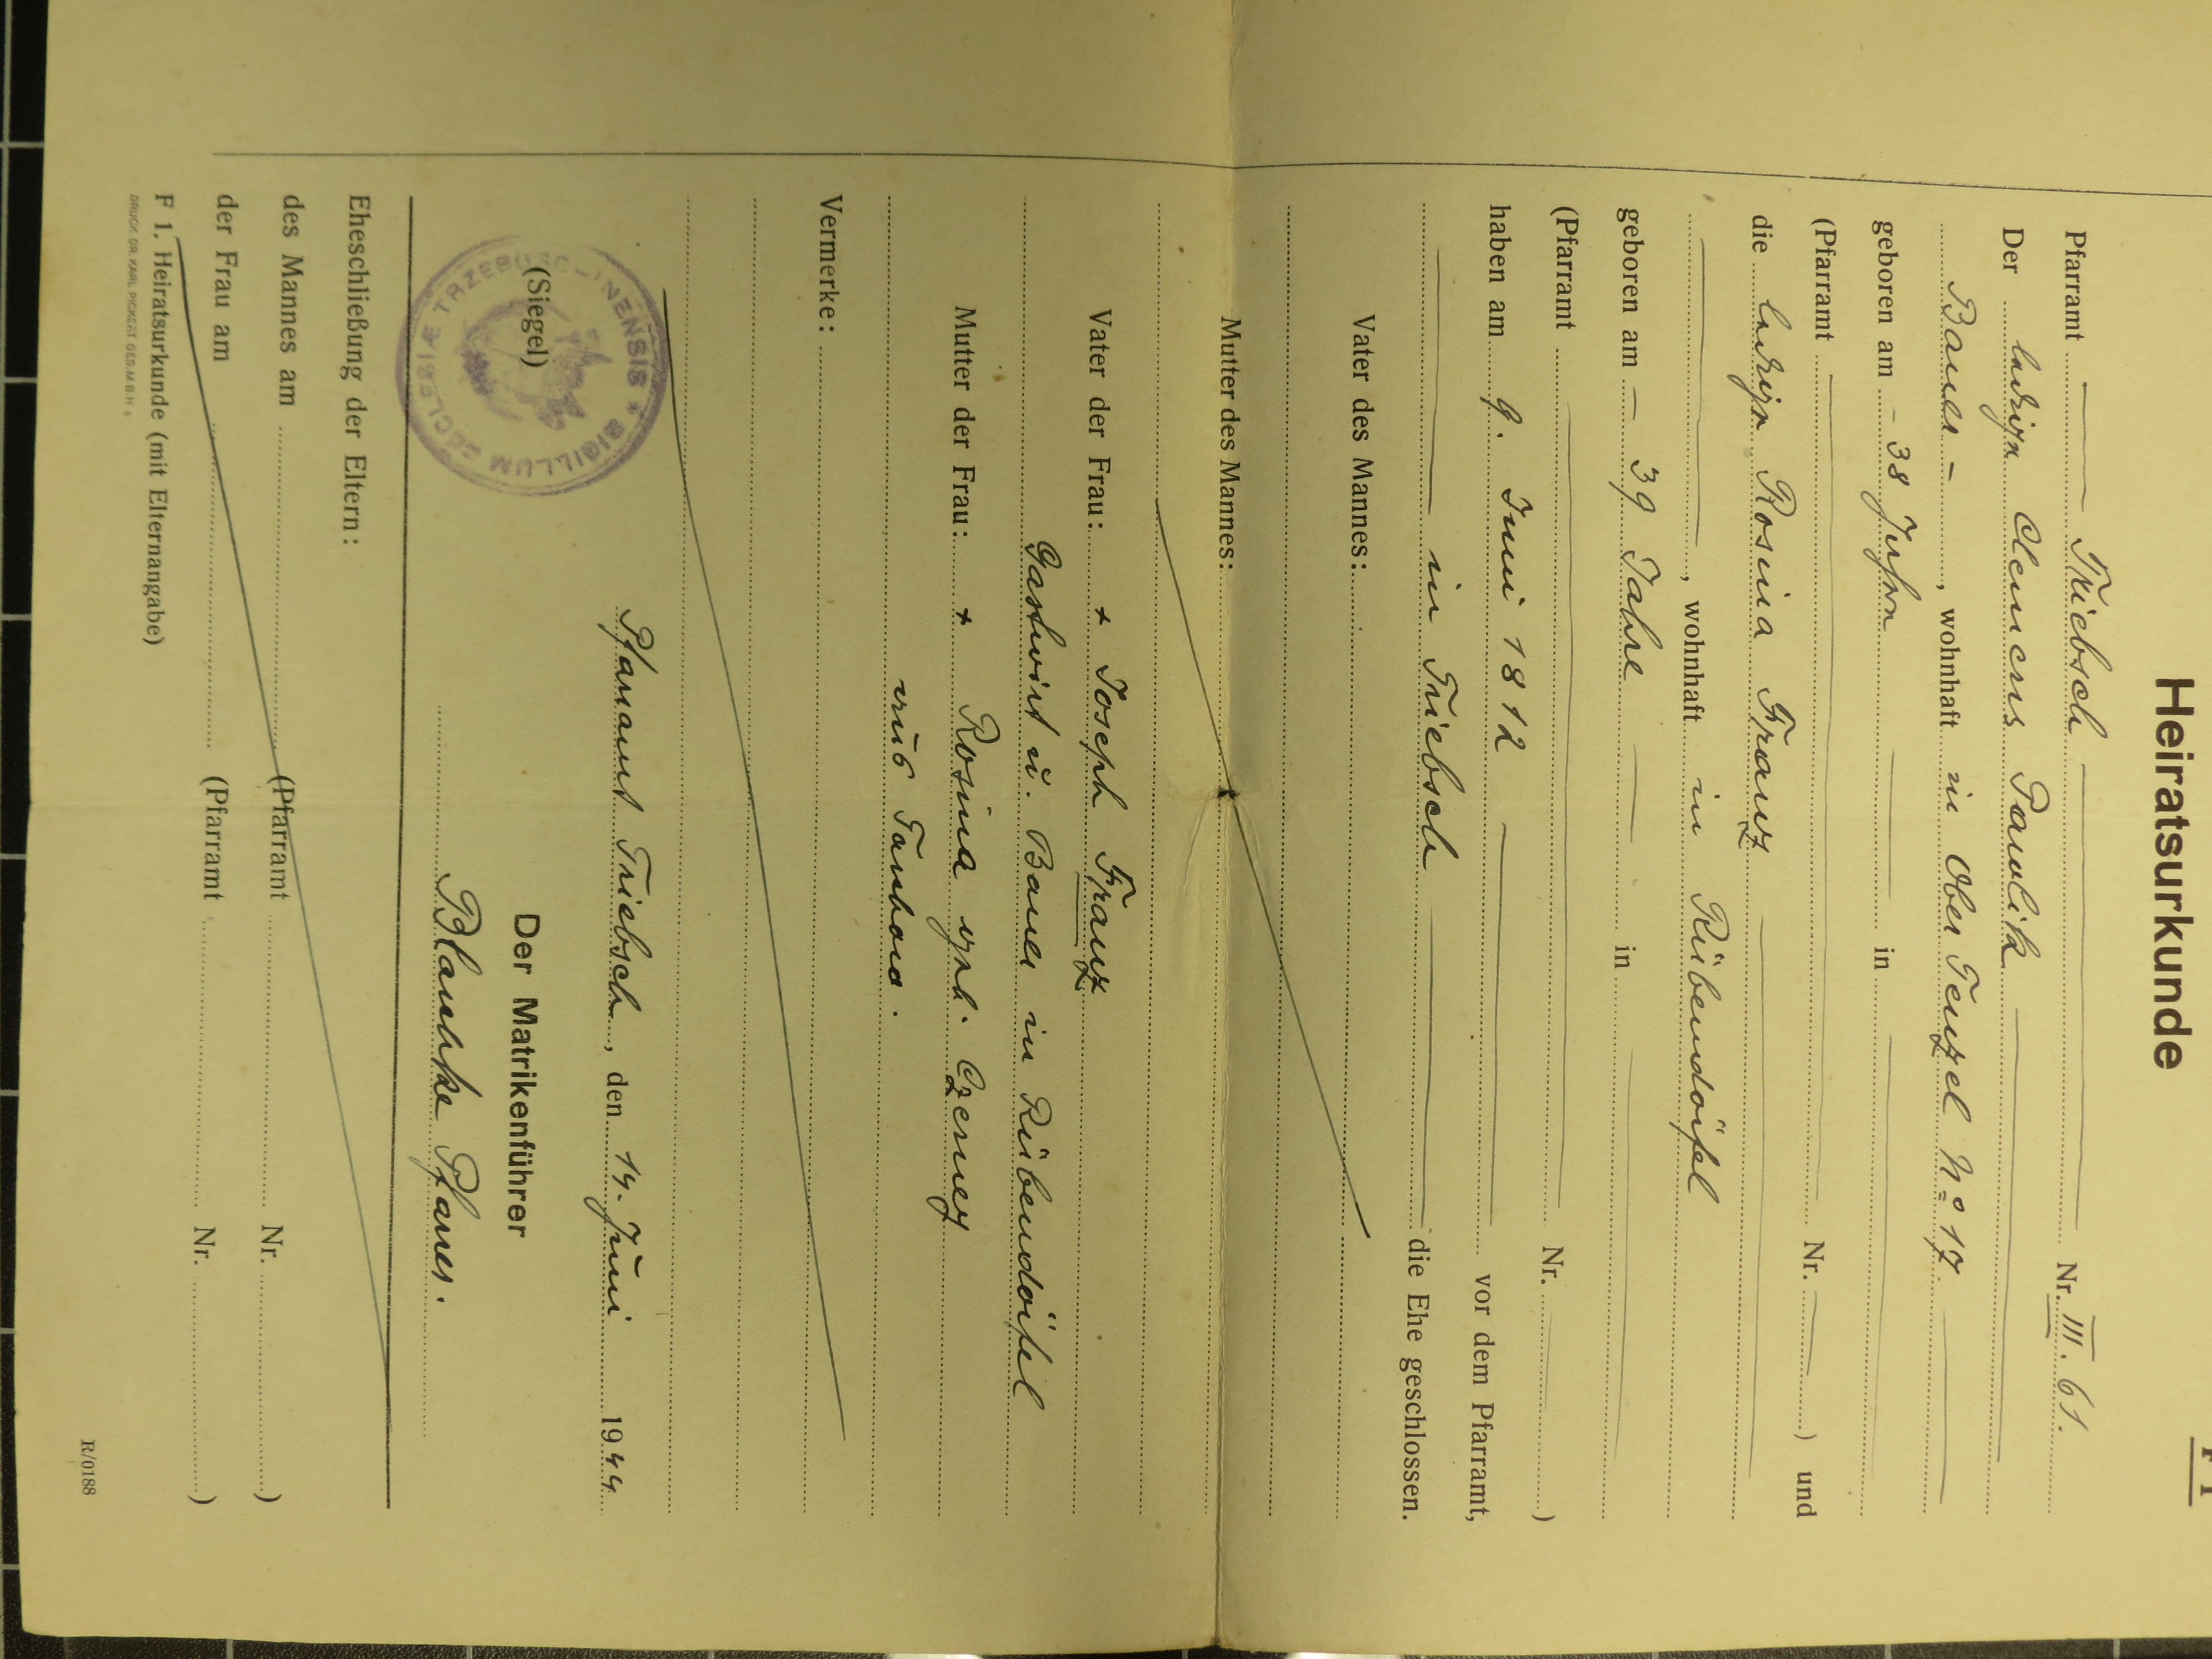 F 1
Heiratsurkunde
Pfarramt Triebsch Nr. III. 61.
Der ledige Clemens Pawlik
Bauer -, wohnhaft in Ober Tenzel No 17.
geboren am - 38 Jahre in
(Pfarramt Nr. ) und
die ledige Rosina Franz
, wohnhaft in Rübendörfel
geboren am - 39 Jahre in
(Pfarramt Nr. )
haben am 9. Juni 1812 vor dem Pfarramt,
in Triebsch die Ehe geschlossen.
Vater des Mannes:
Mutter des Mannes:
Vater der Frau: + Joseph Franz
Gastwirt u. Bauer in Rübendörfel
Mutter der Frau: + Rosina geb. Czerney
aus .
Vermerke:
Pfarramt Triebsch, den 14. Juni 1944
(Siegel)
SIGILLUM ECCLESIÆ
Der Matrikenführer
Blaschke Pfarrer.
Eheschließung der Eltern:
des Mannes am (Pfarramt Nr. )
der Frau am (Pfarramt Nr. )
F 1. Heiratsurkunde (mit Elternangabe)
DRUCK DR. KARL PICKERT GES.M.B.H
R/0188